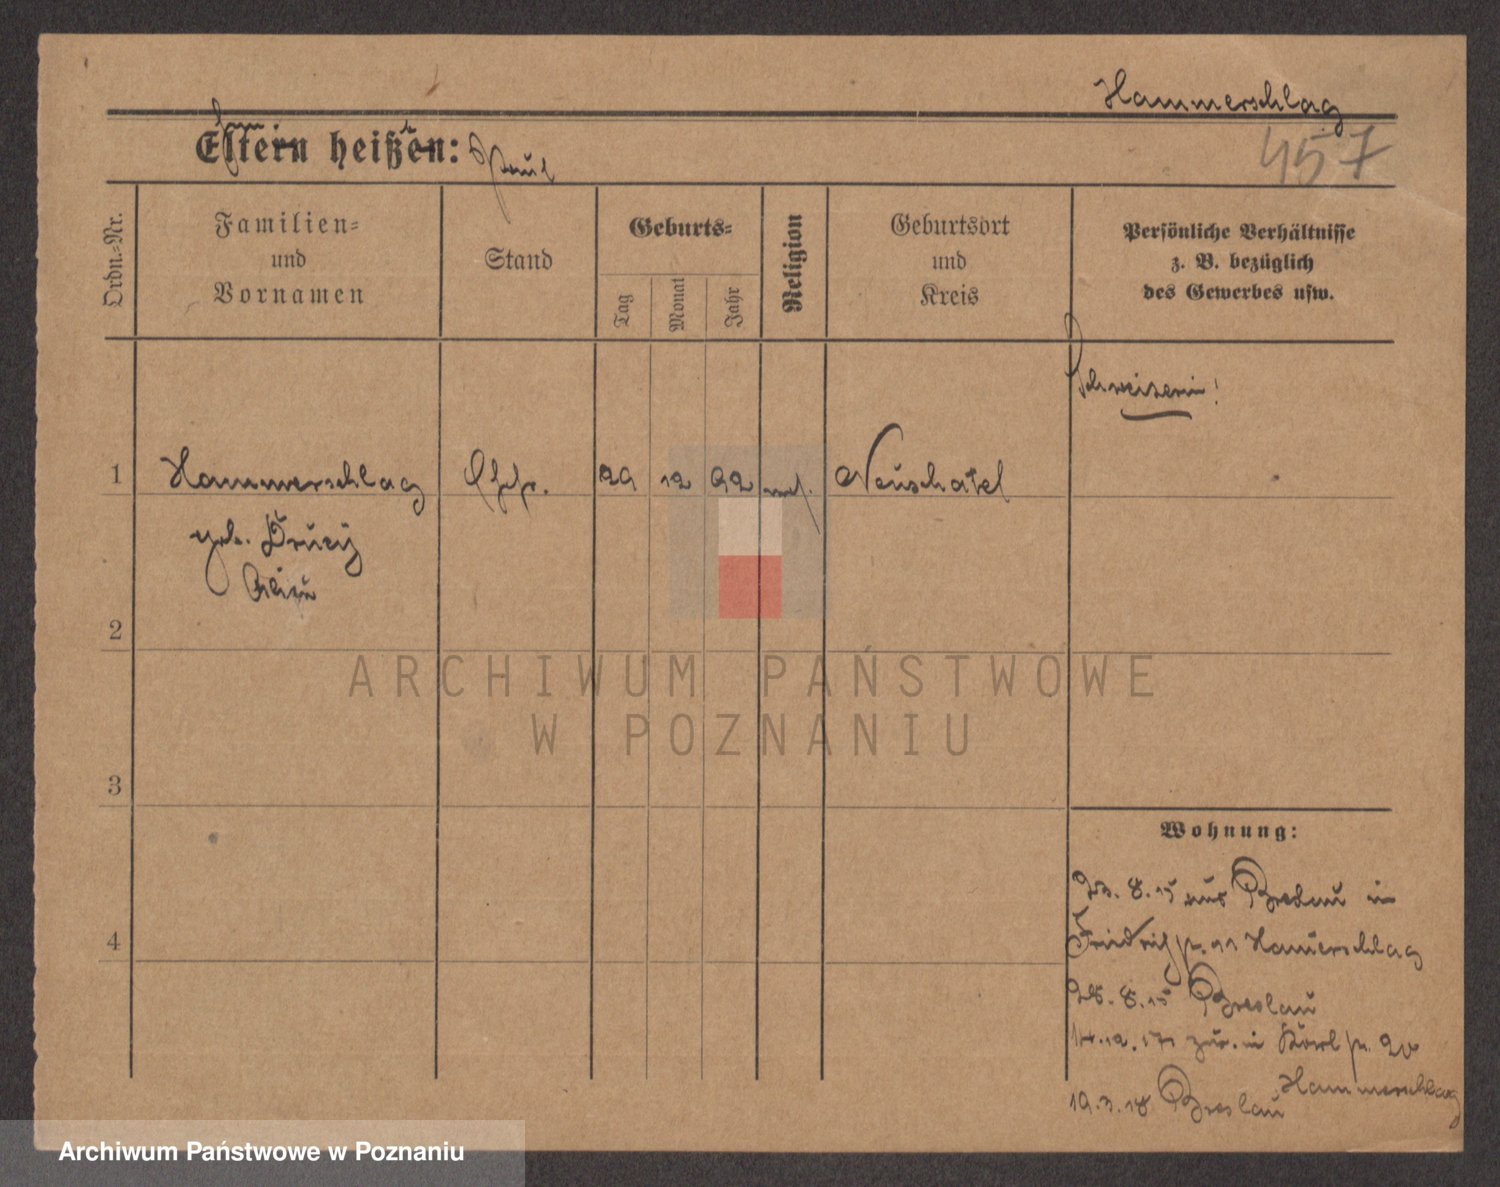 Hammerschlag
457
Eltern heißen: Paul
Ordn.-Nr.
Familien-
und
Vornamen
Stand
Geburts-
Tag
Monat
Jahr
Religion
Geburtsort
und
Kreis
Persönliche Verhältnisse
z. B. bezüglich
des Gewerbes usw.
Schweizerin!
1
Hammerschlag
Ehefr.
29
12
92
Neuschatel
geb. Drucÿ
2
ARCHIWUM PAŃSTWOWE
W POZNANIU
3
Wohnung:
23. 8. 15 aus Breslau in
4
Friedrichstr. 11 Hammerschlag
28. 8. 15 Breslau
zur. in Karl str. 20
Hammerschlag
19.3.18 Breslau
Archiwum Państwowe w Poznaniu